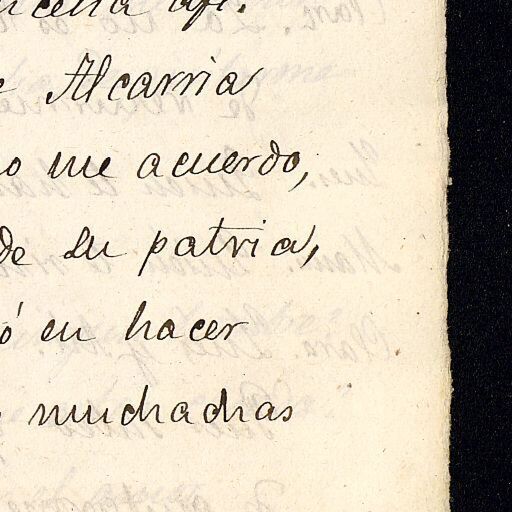 Alcarria
me acuerdo,
de su patria,
ó en hacer
muchachas